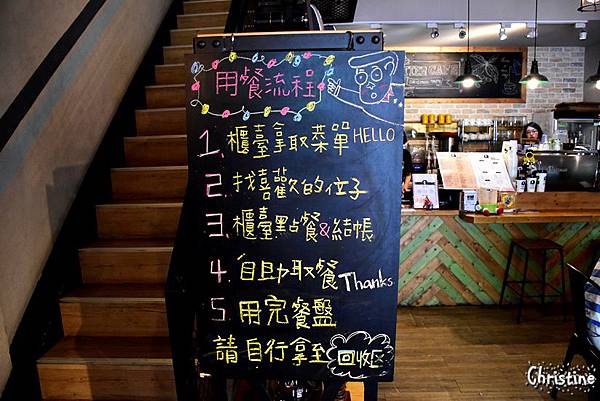 用餐流程
1. 櫃臺拿取菜單 HELLO
2. 找喜歡的位子
3. 櫃臺點餐&結帳
4. 自助取餐 Thanks
5. 用完餐盤
請自行拿至 回收區
Christine